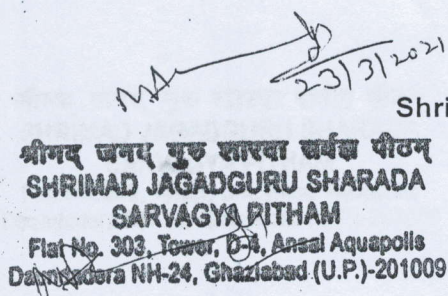 23/3/2021
Shri
श्रीमद् जगद् गुरु शारदा सर्वज्ञ पीठम्
SHRIMAD JAGADGURU SHARADA
SARVAGYA PITHAM
Flat No. 303, Tower, D-4, Ansal Aquapolis
NH-24, Ghaziabad (U.P.)-201009